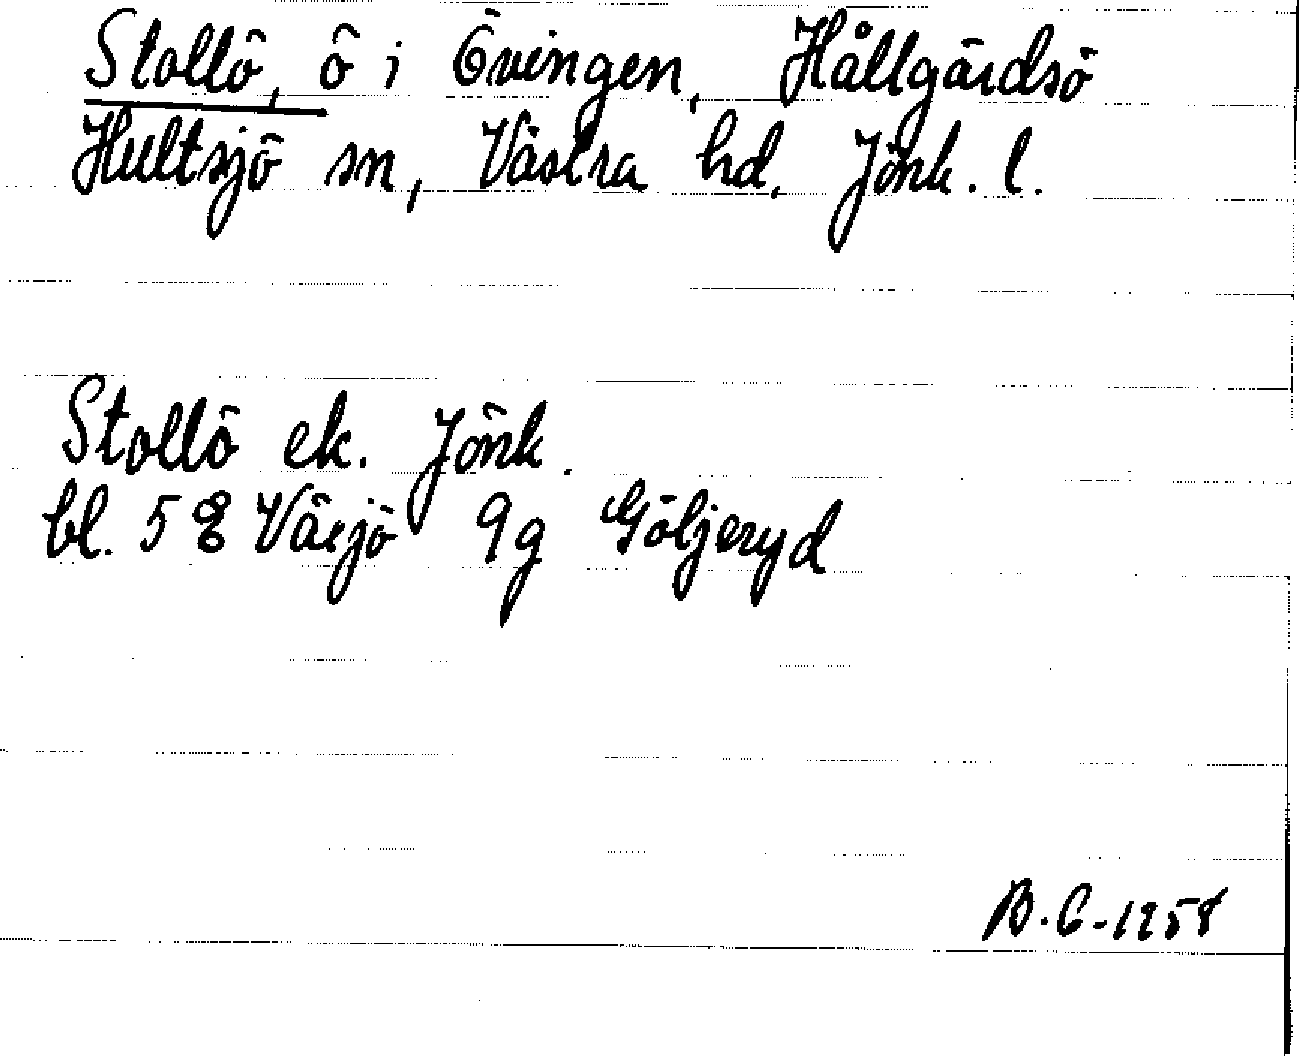 Stollö, ö i Övingen, Hållgårdsö
Hultsjö sn, Västra hd. Jönk. l.
Stollö ek. Jönk.
bl. 5 E Växjö 9g Göljeryd
B.G-1958